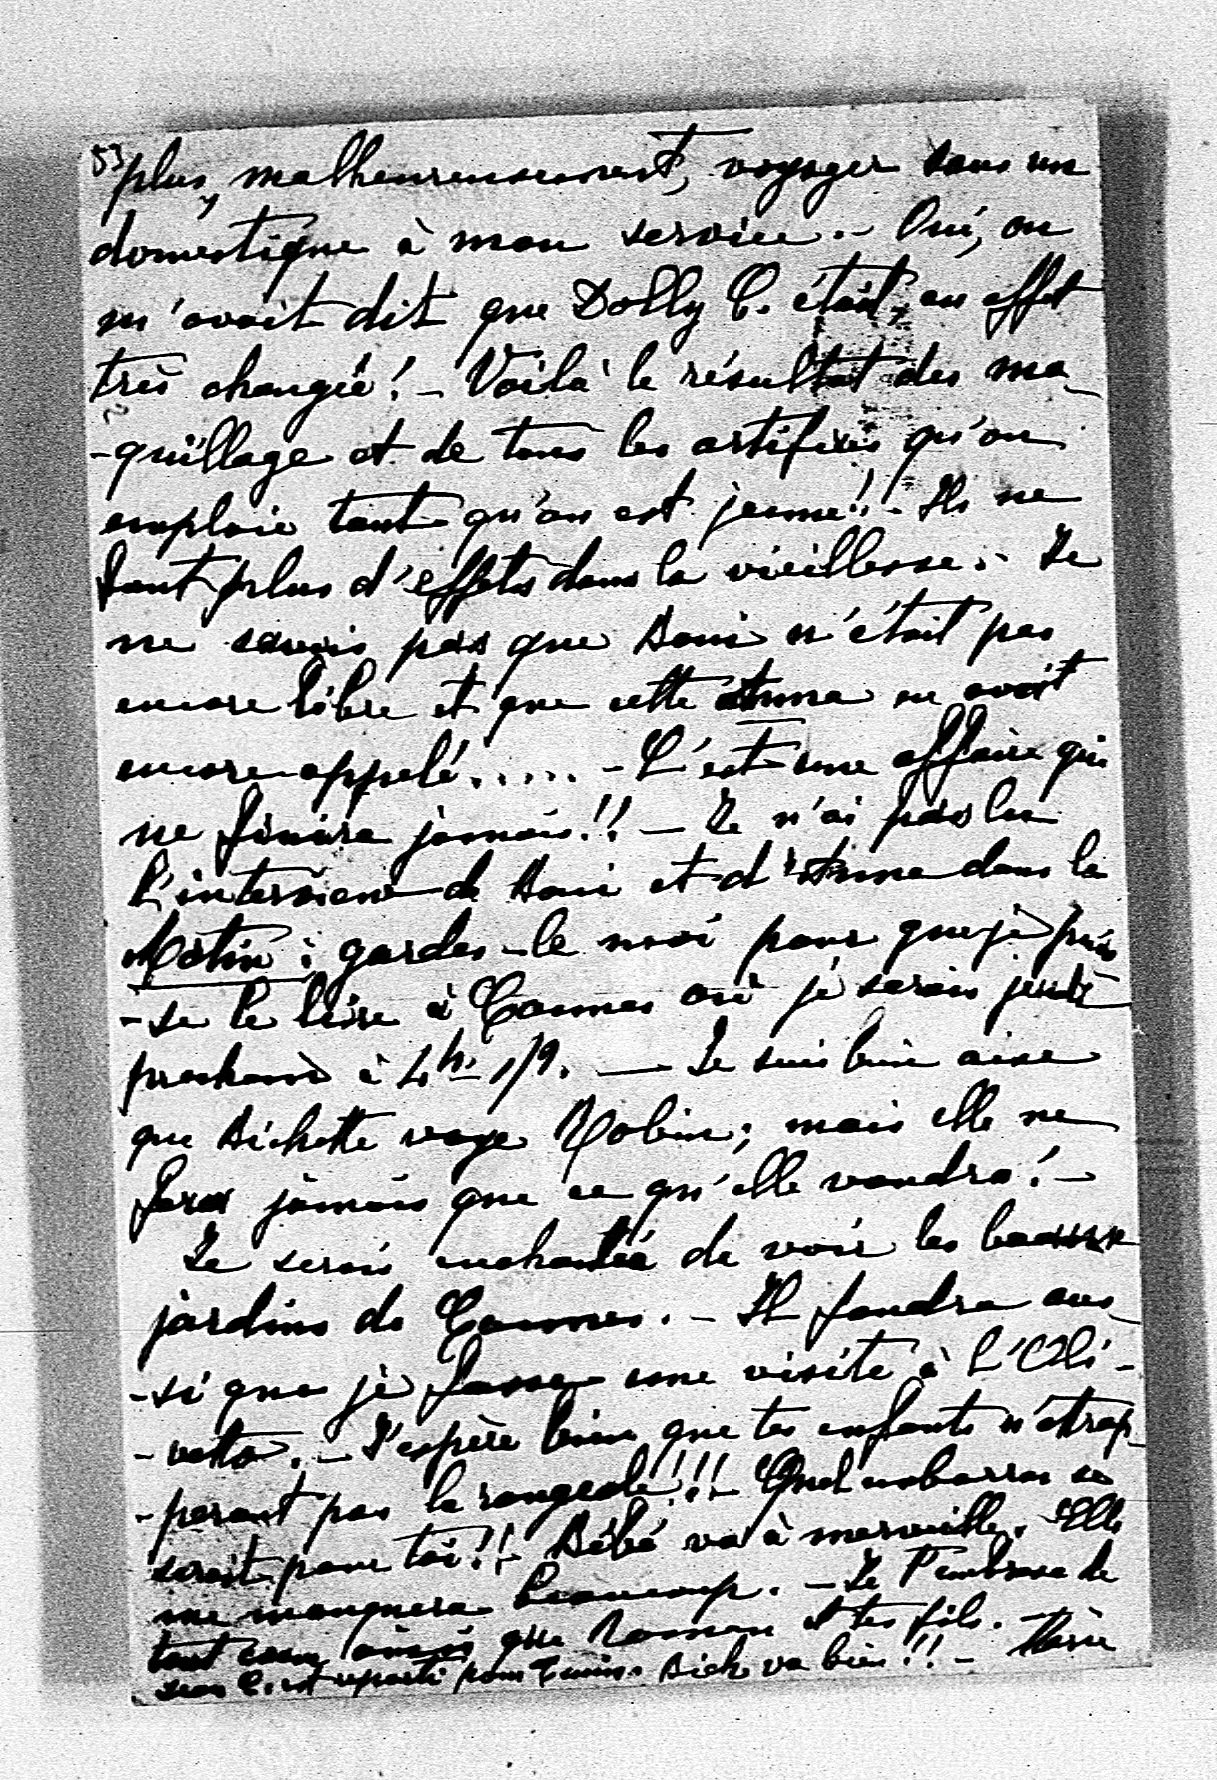 53
plus, malheureusement, voyager sans un
domestique à mon service. - Oui, on
m'avait dit que Dolly C. était, en effet
très changée! - Voilà le résultat des ma-
-quillage et de tous les artifices qu'on
emploie tant qu'on est jeune!! - Ils ne
font plus d'effets dans la vieillesse. - Je
ne savais pas que Boni n'était pas
encore libre et que cette Anna en avait
encore appelé..... - C'est une affaire qui
ne finira jamais!! - Je n'ai pas lu
l'interview de Boni et d'Anna dans le
Matin: gardes-le moi pour que je puis-
-se le lire à Cannes où je serais jeudi
prochain à 4h-1/2. - Je suis bien aise
que Bichette voye Robin; mais elle ne
fera jamais que ce qu'elle voudra! -
Je serais enchantée de voir les beaux
jardins de Cannes. - Il faudra aus-
-si que je fasse une visite à l'Oli-
-veto. - J'espère bien que tes enfants n'attrap-
-peront pas la rougeole!!! - Quel embarras ce
serait pour toi!! - Bébé va à merveille. Elle
me manquera beaucoup. - Je t'embrasse de
tout cœur ainsi que Roman et tes fils. - Marie
C. est reparti pour Turin. Bich va bien!! -